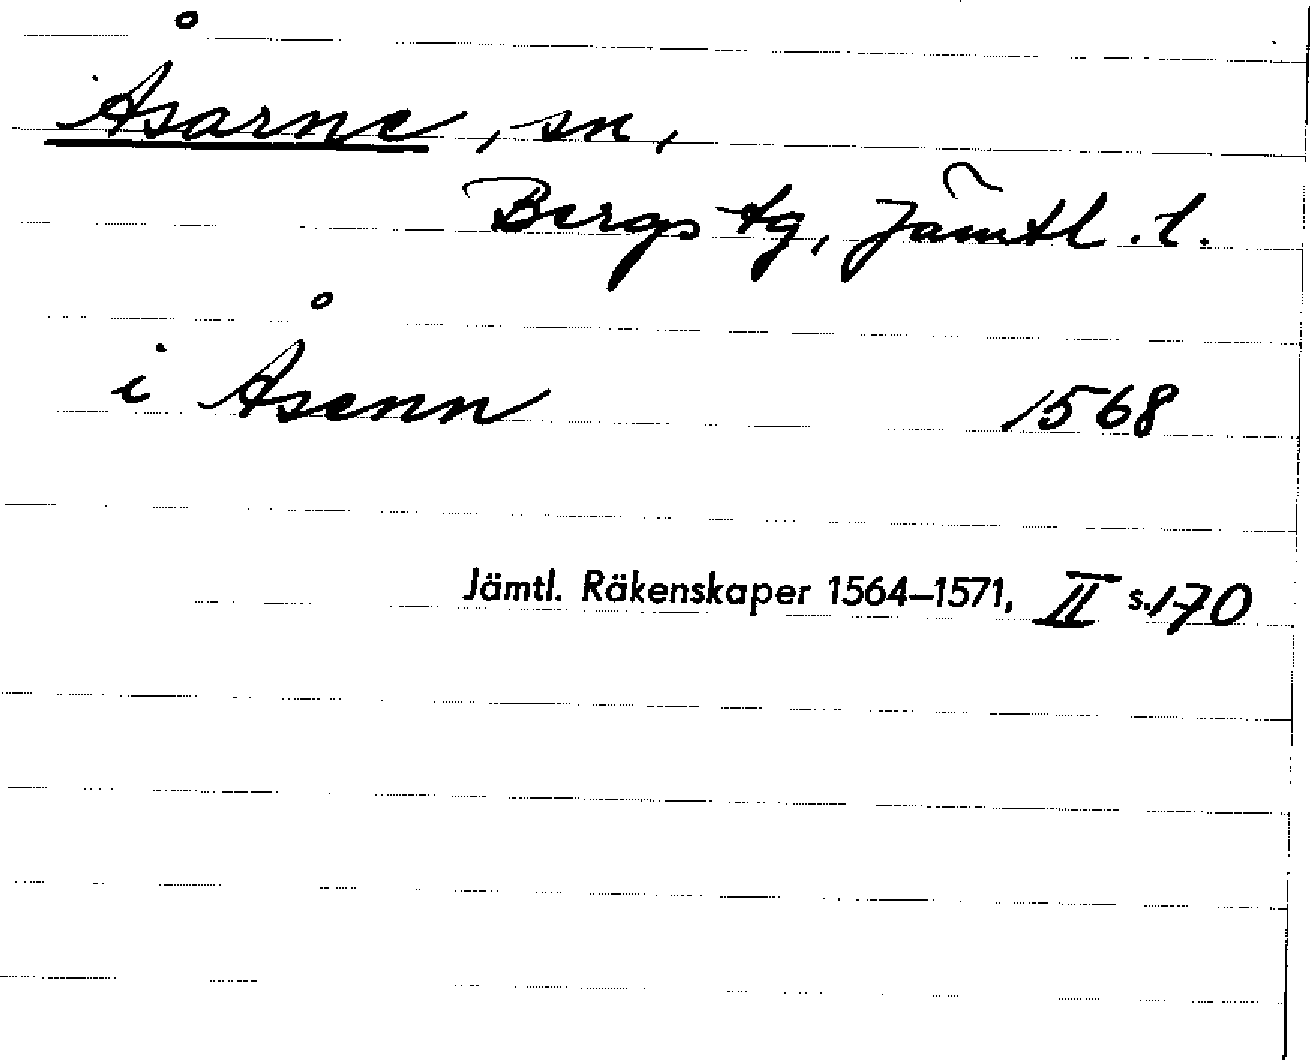 Åsarne, sn,
Bergs tg, Jämtl. l.
i Åsenn 1568
Jämtl. Räkenskaper 1564–1571, II s. 170